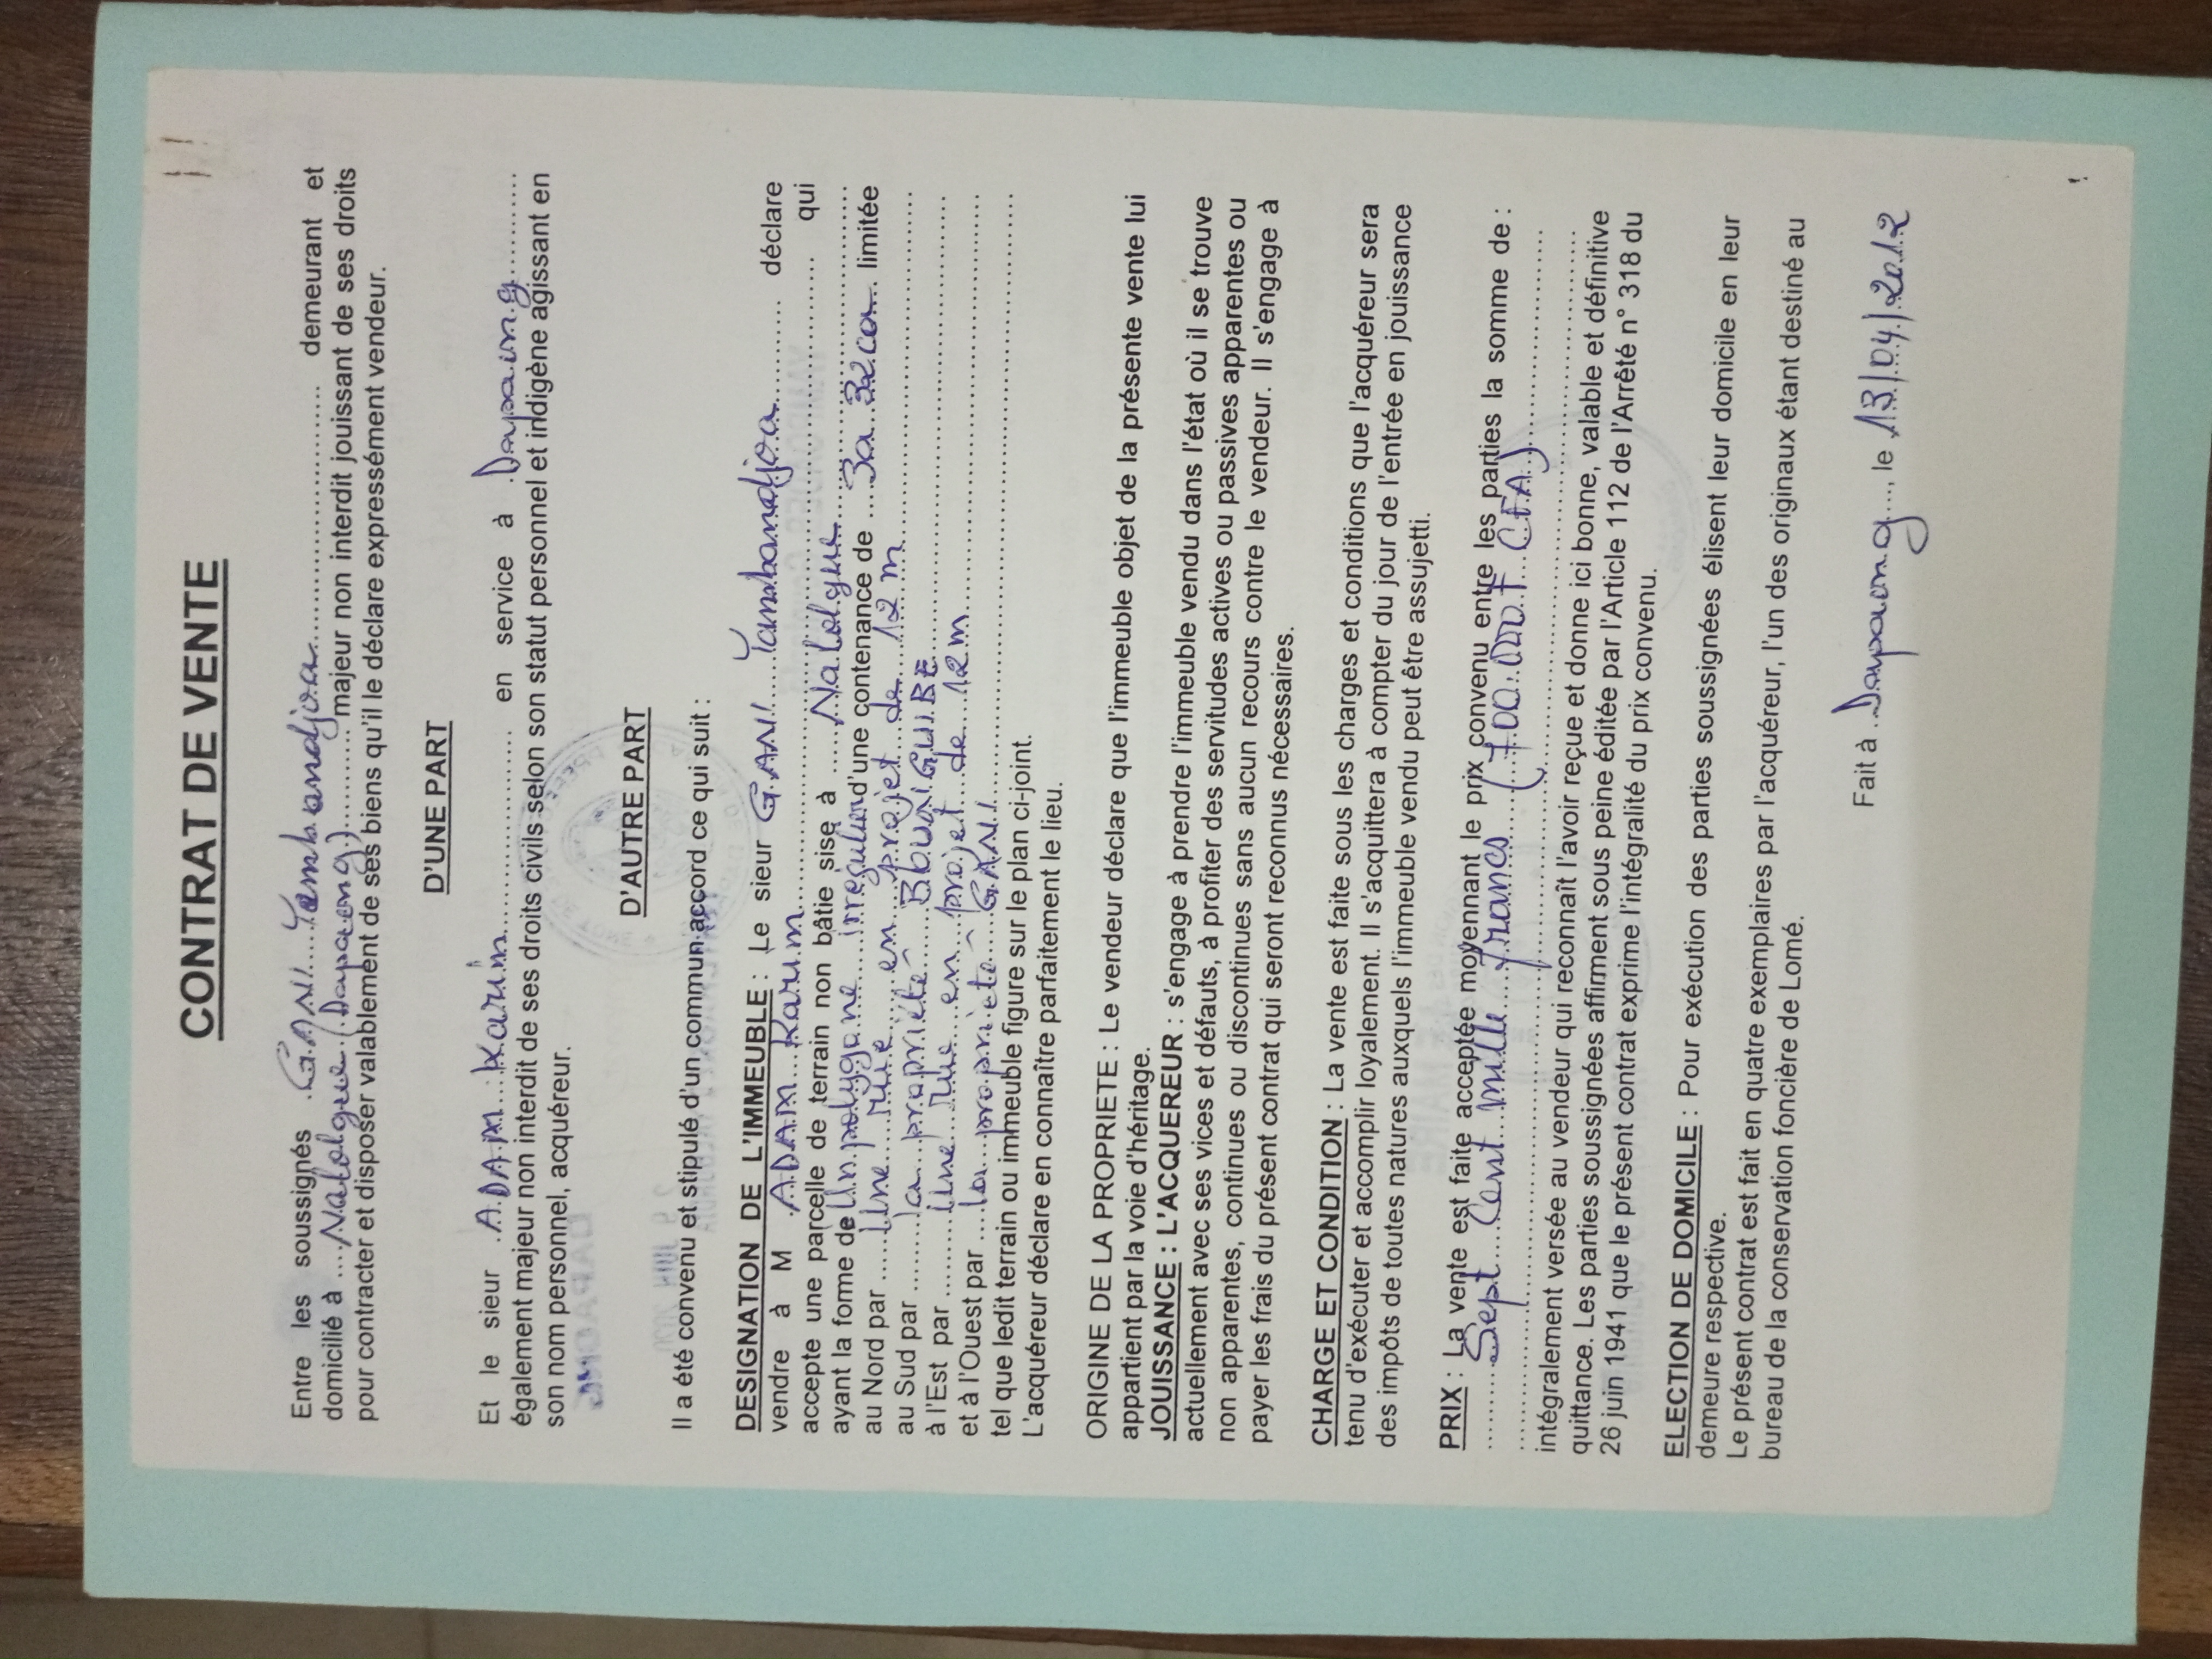 CONTRAT DE VENTE
Entre les soussignés .G.A.N.I.... Yambandjoa........................ demeurant et
domicilié à ....Nalolgue (Dapaong)............ majeur non interdit jouissant de ses droits
pour contracter et disposer valablement de ses biens qu'il le déclare expressément vendeur.
D'UNE PART
Et le sieur .A.D.A.M...Karim............................ en service à .Dapaong............
également majeur non interdit de ses droits civils selon son statut personnel et indigène agissant en
son nom personnel, acquéreur.
D'AUTRE PART
Il a été convenu et stipulé d'un commun accord ce qui suit :
DESIGNATION DE L'IMMEUBLE : Le sieur G.A.N.I....Yambandjoa............ déclare
vendre à M .A.D.A.M...Karim................................................ qui
accepte une parcelle de terrain non bâtie sise à .....Nalolgue................................
ayant la fome de Un polygone..irregulier d'une contenance de ...3a..32ca... limitée
au Nord par ....Une..rue....en...projet..de...12 m................................
au Sud par ........la..propriété.....BOUAIGUIBE................................
à l'Est par .........Une..rue..en...projet....de..12m................................
et à l'Ouest par ...la..propriété....GANI................................
tel que ledit terrain ou immeuble figure sur le plan ci-joint.
L'acquéreur déclare en connaître parfaitement le lieu.
ORIGINE DE LA PROPRIETE : Le vendeur déclare que l'immeuble objet de la présente vente lui
appartient par la voie d'héritage.
JOUISSANCE : L'ACQUEREUR : s'engage à prendre l'immeuble vendu dans l'état où il se trouve
actuellement avec ses vices et défauts, à profiter des servitudes actives ou passives apparentes ou
non apparentes, continues ou discontinues sans aucun recours contre le vendeur. Il s'engage à
payer les frais du présent contrat qui seront reconnus nécessaires.
CHARGE ET CONDITION : La vente est faite sous les charges et conditions que l'acquéreur sera
tenu d'exécuter et accomplir loyalement. Il s'acquittera à compter du jour de l'entrée en jouissance
des impôts de toutes natures auxquels l'immeuble vendu peut être assujetti.
PRIX : La vente est faite acceptée moyennant le prix convenu entre les parties la somme de :
.........Sept....Cent..mille...francs.....(700.000.F..CFA)........................
................................................................................
intégralement versée au vendeur qui reconnaît l'avoir reçue et donne ici bonne, valable et définitive
quittance. Les parties soussignées affirment sous peine éditée par l'Article 112 de l'Arrêté n° 318 du
26 juin 1941 que le présent contrat exprime l'intégralité du prix convenu.
ELECTION DE DOMICILE : Pour exécution des parties soussignées élisent leur domicile en leur
demeure respective.
Le présent contrat est fait en quatre exemplaires par l'acquéreur, l'un des originaux étant destiné au
bureau de la conservation foncière de Lomé.
Fait à ..Dapaong...., le 13/04/2012